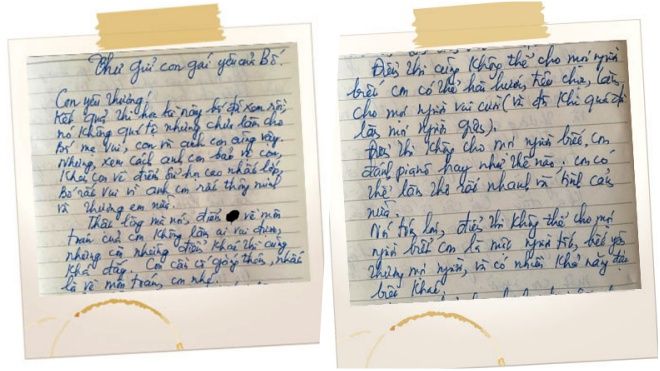 Thư gửi con gái yêu của Bố.
Con yêu thương!
Kết quả thi học kì này bố đã xem rồi,
nó không quá tệ nhưng chưa làm cho
Bố mẹ vui, con và anh con cũng vậy.
Nhưng, xem cách anh con bảo vệ con,
khai con về điểm bơi cao nhất lớp,
Bố rất vui vì anh con rất thông minh
và thương em nữa.
Thật lòng mà nói, điểm về môn
toán của con không làm ai vui được,
nhưng con những điểm khác thì cũng
khá đấy. Con cần cố gắng thêm, nhất
là về môn toán, con nhé.
Điểm thi cũng không thể cho mọi người
biết con có thể hài hước, tiếu lâm, làm
cho mọi người vui cười (và đôi khi
làm mọi người giận).
Điểm thi không cho mọi người biết, con
đánh piano hay như thế nào. con có
thể làm thơ rất nhanh và tình cảm
nữa.
Nói tóm lại, điểm thi không thể cho mọi
người biết con là một người tốt, biết yêu
thương mọi người, và có nhiều khả năng đặc
biệt khác.